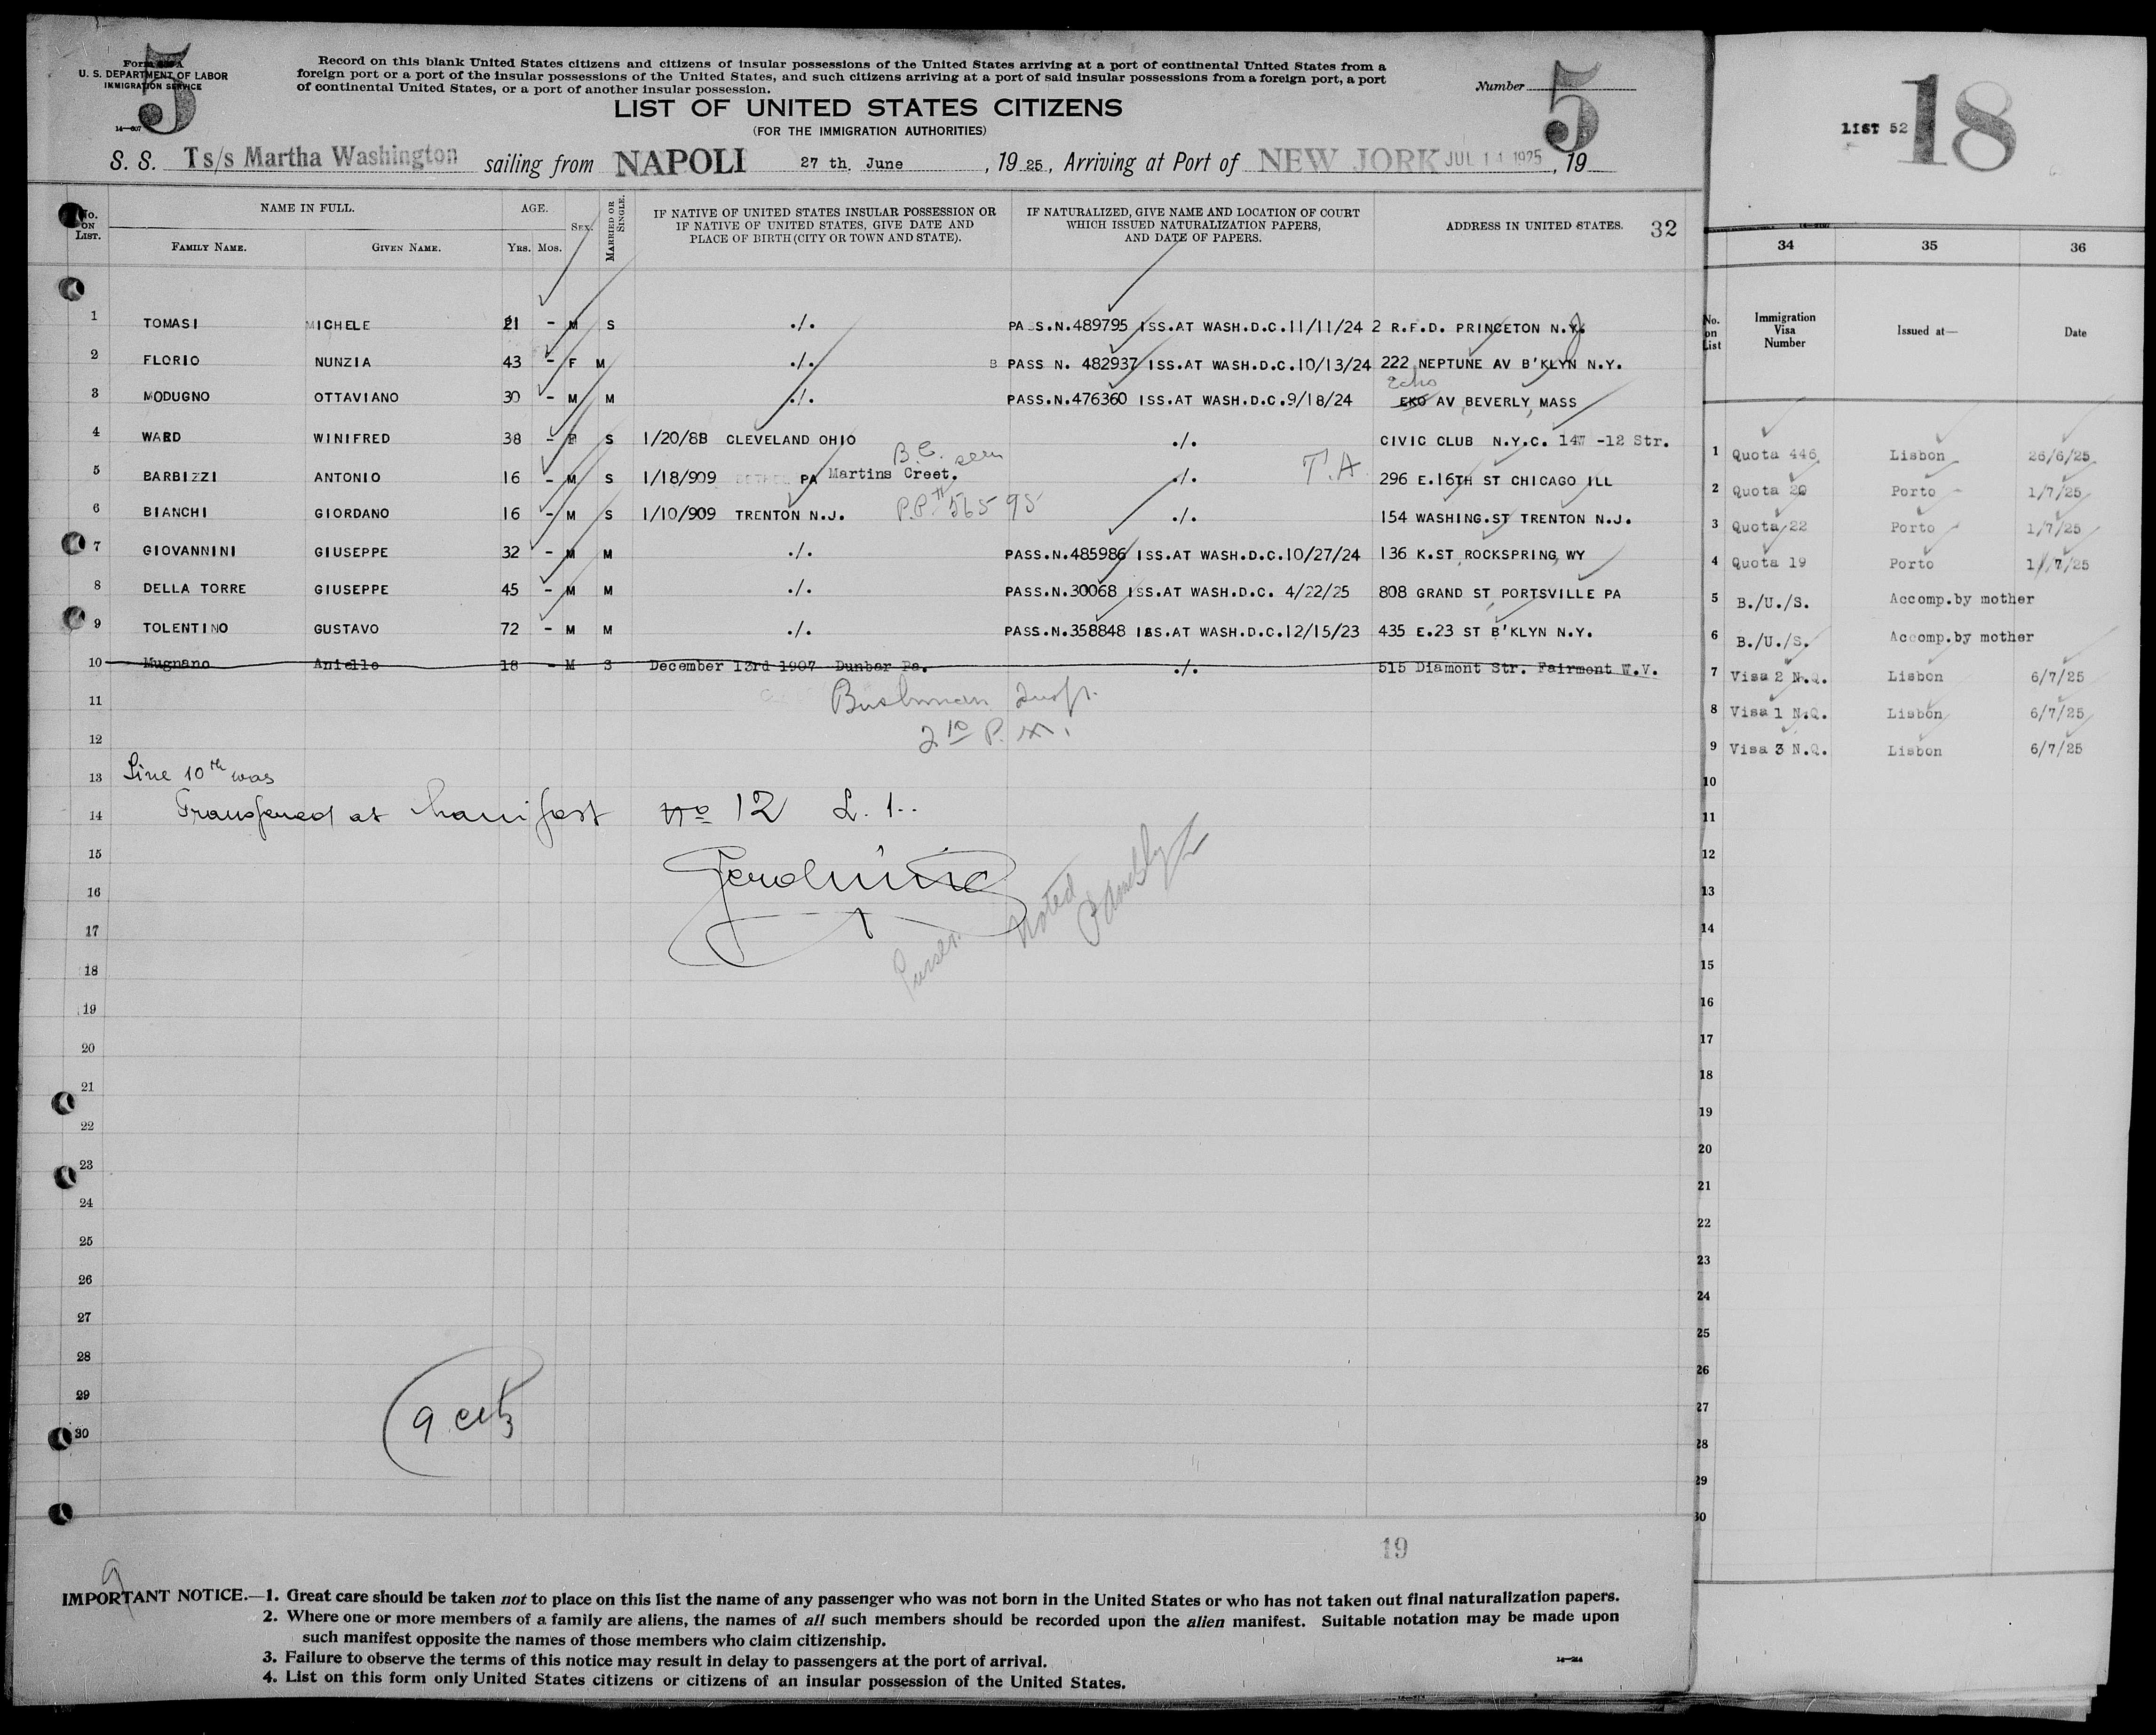 5
Form
U. S. DEPARTMENT OF LABOR
IMMIGRATION SERVICE
14—607
Record on this blank United States citizens and citizens of insular possessions of the United States arriving at a port of continental United States from a
foreign port or a port of the insular possessions of the United States, and such citizens arriving at a port of said insular possessions from a foreign port, a port
of continental United States, or a port of another insular possession.
LIST OF UNITED STATES CITIZENS
(FOR THE IMMIGRATION AUTHORITIES)
Number 5
S. S. Ts/s Martha Washington sailing from NAPOLI 27 th. June , 19 25 , Arriving at Port of NEW JORK JUL 14 1925 , 19
No. ON LIST. NAME IN FULL. AGE. SEX. MARRIED OR SINGLE. IF NATIVE OF UNITED STATES INSULAR POSSESSION OR IF NATIVE OF UNITED STATES, GIVE DATE AND PLACE OF BIRTH (CITY OR TOWN AND STATE). IF NATURALIZED, GIVE NAME AND LOCATION OF COURT WHICH ISSUED NATURALIZATION PAPERS, AND DATE OF PAPERS. ADDRESS IN UNITED STATES. 32
FAMILY NAME. GIVEN NAME. YRS. MOS.
1 TOMASI MICHELE 21 - M S ./. PASS.N.489795 ISS.AT WASH.D.C.11/11/24 2 R.F.D. PRINCETON N.Y. J
2 FLORIO NUNZIA 43 - F M ./. B PASS N. 482937 ISS.AT WASH.D.C.10/13/24 222 NEPTUNE AV B'KLYN N.Y.
Echo
3 MODUGNO OTTAVIANO 30 - M M ./. PASS.N.476360 ISS.AT WASH.D.C.9/18/24 EKO AV BEVERLY MASS
4 WARD WINIFRED 38 - F S 1/20/88 CLEVELAND OHIO ./. CIVIC CLUB N.Y.C. 14W -12 Str.
B.C. seen
5 BARBIZZI ANTONIO 16 - M S 1/18/909 PA Martins Creet. ./. T.A. 296 E.16TH ST CHICAGO ILL
6 BIANCHI GIORDANO 16 - M S 1/10/909 TRENTON N.J. P.P. # 56595 ./. 154 WASHING.ST TRENTON N.J.
7 GIOVANNINI GIUSEPPE 32 - M M ./. PASS.N.485986 ISS.AT WASH.D.C.10/27/24 136 K.ST ROCKSPRING WY
8 DELLA TORRE GIUSEPPE 45 - M M ./. PASS.N.30068 ISS.AT WASH.D.C. 4/22/25 808 GRAND ST PORTSVILLE PA
9 TOLENTINO GUSTAVO 72 - M M ./. PASS.N.358848 ISS.AT WASH.D.C.12/15/23 435 E.23 ST B'KLYN N.Y.
10 Mugnano Aniello 18 - M S December 13rd 1907 Dunbar Pa. ./. 515 Diamont Str. Fairmont W.V.
11 Bushman Insp.
12 2
13 Line 10th was
14 Transfered at Manifest no 12 L. 1..
15
16
17 Noted
18 Purser.
19
20
21
22
23
24
25
26
27
28
29 9 citz
30
19
9
IMPORTANT NOTICE.—1. Great care should be taken not to place on this list the name of any passenger who was not born in the United States or who has not taken out final naturalization papers.
2. Where one or more members of a family are aliens, the names of all such members should be recorded upon the alien manifest. Suitable notation may be made upon
such manifest opposite the names of those members who claim citizenship.
3. Failure to observe the terms of this notice may result in delay to passengers at the port of arrival.
4. List on this form only United States citizens or citizens of an insular possession of the United States.
LIST 52 18
34 35 36
No. on List Immigration Visa Number Issued at— Date
1 Quota 446 Lisbon 26/6/25
2 Quota 20 Porto 1/7/25
3 Quota 22 Porto 1/7/25
4 Quota 19 Porto 1/7/25
5 B./U./S. Accomp.by mother
6 B./U./S. Accomp.by mother
7 Visa 2 N.Q. Lisbon 6/7/25
8 Visa 1 N.Q. Lisbon 6/7/25
9 Visa 3 N.Q. Lisbon 6/7/25
10
11
12
13
14
15
16
17
18
19
20
21
22
23
24
25
26
27
28
29
30